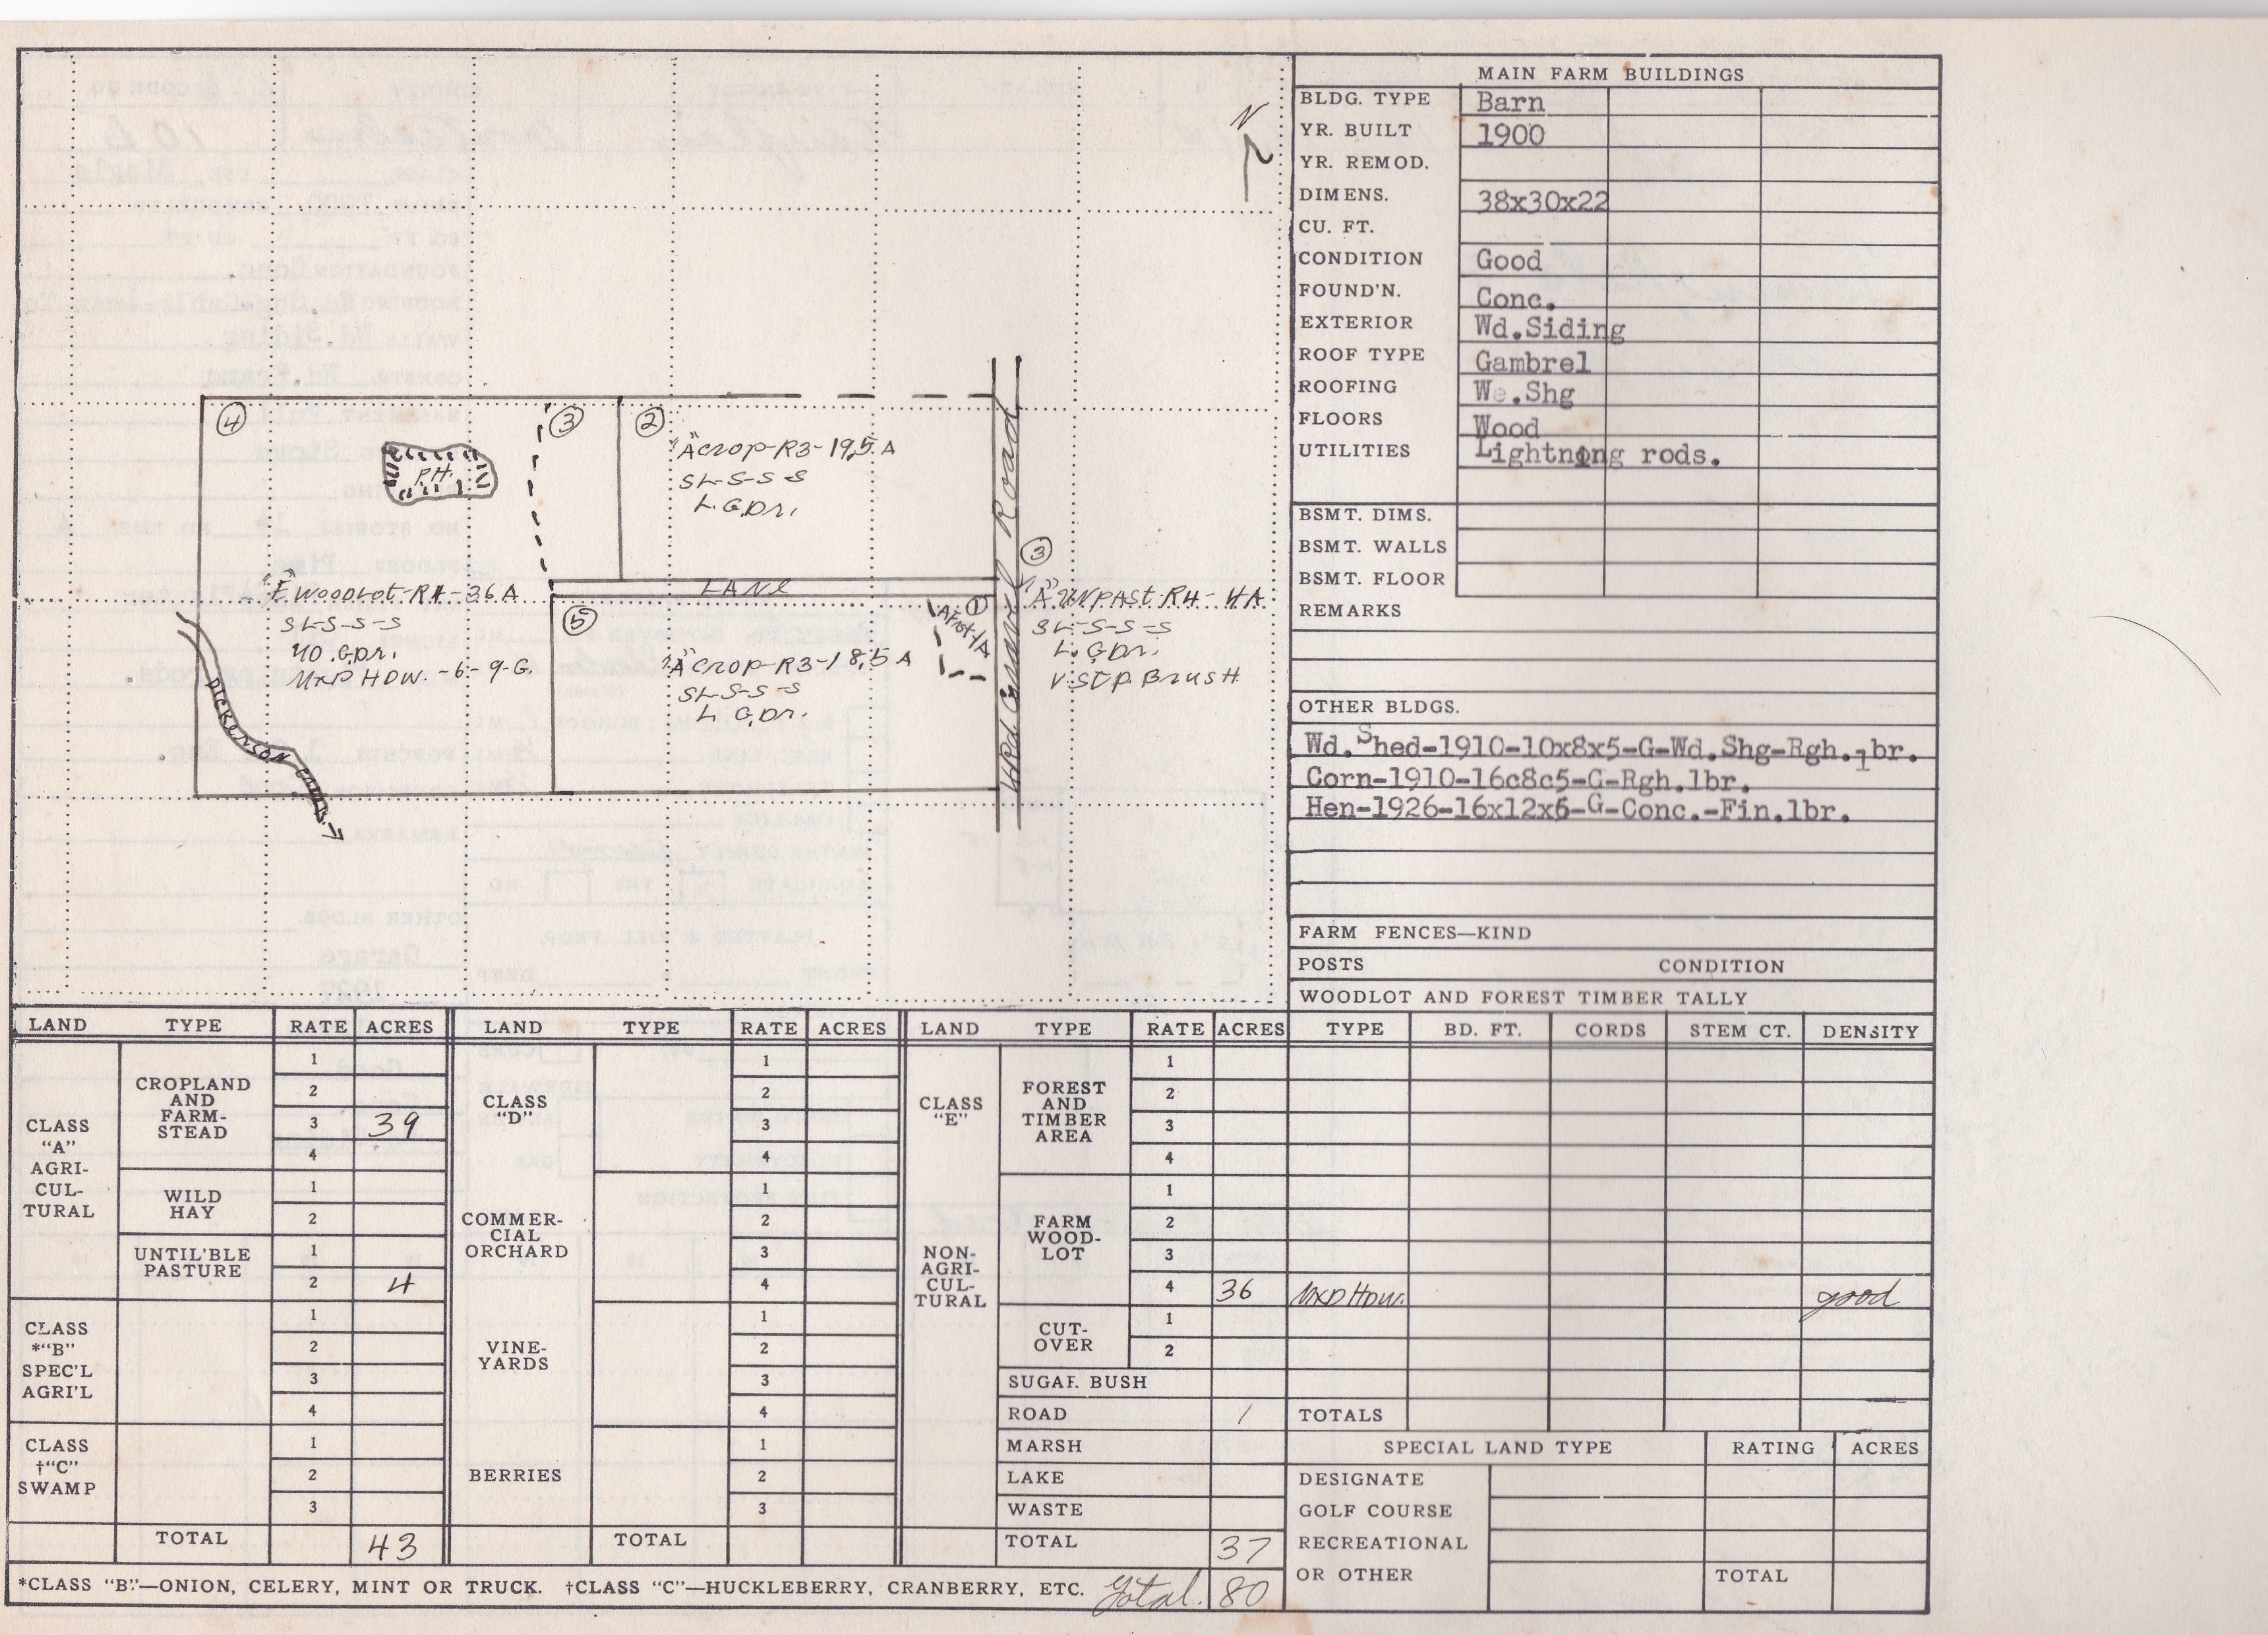 N
④
③
②
P.H.
"A" crop-R3-19.5 A
SL-S-S-S
L.G.Dr.
"E" Woodlot-R4-36A
SL-S-S-S
G.Dr.
MXD HDW.-6-9-G.
DICKERSON
LANE
⑤
①
"A" crop-R3-18.5 A
SL-S-S-S
L G.Dr.
Gravel Road
③
PAST R4-4A
SL-S-S-S
L.G.Dr.
BrusH
MAIN FARM BUILDINGS
BLDG. TYPE Barn
YR. BUILT 1900
YR. REMOD.
DIMENS. 38x30x22
CU. FT.
CONDITION Good
FOUND'N. Conc.
EXTERIOR Wd.Siding
ROOF TYPE Gambrel
ROOFING We.Shg
FLOORS Wood
UTILITIES Lightning rods.
BSMT. DIMS.
BSMT. WALLS
BSMT. FLOOR
REMARKS
OTHER BLDGS.
Wd.Shed-1910-10x8x5-G-Wd.Shg-Rgh.lbr.
Corn-1910-16c8c5-G-Rgh.lbr.
Hen-1926-16x12x6-G-Conc.-Fin.lbr.
FARM FENCES—KIND
POSTS CONDITION
WOODLOT AND FOREST TIMBER TALLY
LAND TYPE RATE ACRES LAND TYPE RATE ACRES LAND TYPE RATE ACRES TYPE BD. FT. CORDS STEM CT. DENSITY
CLASS
"A"
AGRI-
CUL-
TURAL
CROPLAND
AND
FARM-
STEAD
1
2
3 39
4
WILD
HAY
1
2
UNTIL'BLE
PASTURE
1
2 4
CLASS
*"B"
SPEC'L
AGRI'L
1
2
3
4
CLASS
†"C"
SWAMP
1
2
3
TOTAL 43
CLASS
"D"
1
2
3
4
COMMER-
CIAL
ORCHARD
1
2
3
4
VINE-
YARDS
1
2
3
4
BERRIES
1
2
3
TOTAL
CLASS
"E"
NON-
AGRI-
CUL-
TURAL
FOREST
AND
TIMBER
AREA
1
2
3
4
FARM
WOOD-
LOT
1
2
3
4 36 MXD HDW. good
CUT-
OVER
1
2
SUGAR BUSH
ROAD 1 TOTALS
MARSH
LAKE
WASTE
TOTAL 37
SPECIAL LAND TYPE RATING ACRES
DESIGNATE
GOLF COURSE
RECREATIONAL
OR OTHER TOTAL
*CLASS "B"—ONION, CELERY, MINT OR TRUCK. †CLASS "C"—HUCKLEBERRY, CRANBERRY, ETC. Total. 80